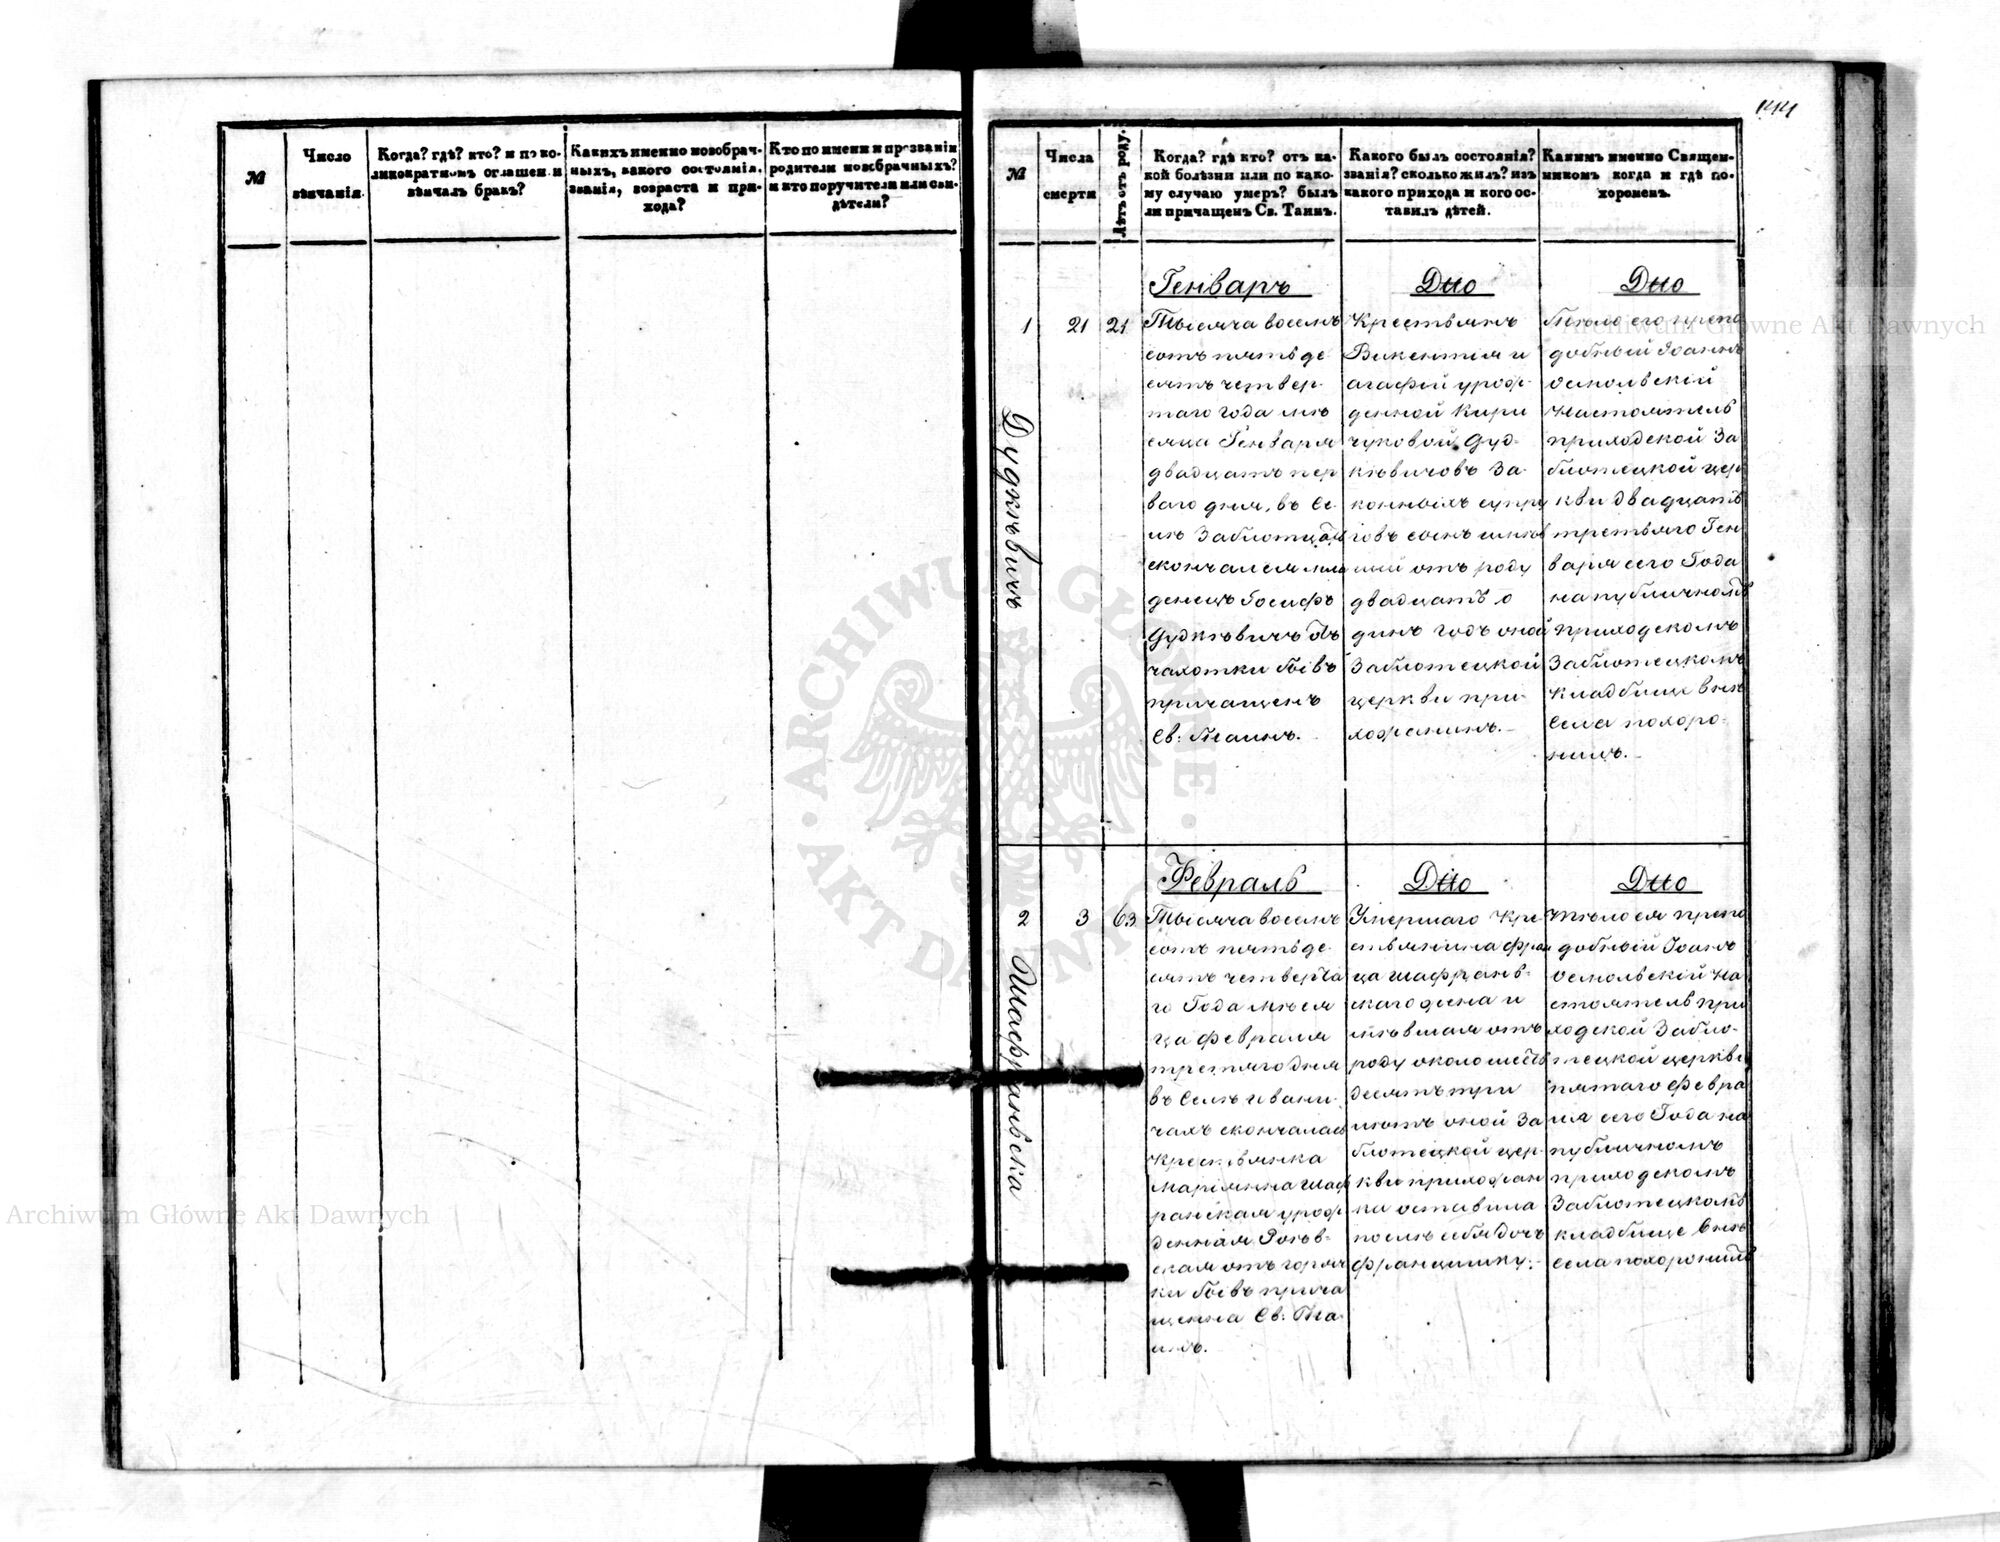 144
№
Число
вѣнчанія.
Когда? гдѣ? кто? и по ко-
ликократномъ оглашеніи
вѣнчалъ бракъ?
Какихъ именно новобрач-
ныхъ, какого состоянія,
званія, возраста и при-
хода?
Кто по имени и прозванію
родители новобрачныхъ?
и кто поручители или сви-
дѣтели?
№
Числа
смерти
Лѣтъ отъ роду.
Когда? гдѣ кто? отъ ка-
кой болѣзни или по како-
му случаю умеръ? былъ
ли причащенъ Св. Таинъ.
Какого былъ состоянія?
званія? сколько жилъ? изъ
какого прихода и кого ос-
тавилъ дѣтей.
Какимъ именно Священ-
никомъ когда и гдѣ по-
хороненъ.
1
21
21
Дудкѣвичъ
Генварь
Тысяча восемъ
сотъ пятьде
сятъ четвер-
таго года мѣ
сяца Генваря
двадцать пер
ваго дня, въ Се-
лѣ Заблотцахъ
скончался мла
денецъ Іосифъ
Дудкѣвичъ отъ
чахотки бывъ
причащенъ
Св: Таинъ.
Дно
Крестьянъ
Викентія и
Агафіи урож-
денной Кири
чуковой Дуд-
кѣвичовъ За-
конныхъ супру
говъ сынъ имѣв
шій отъ роду
двадцать о
динъ годъ оной
Заблотецкой
церкви при-
хожанинъ.
Дно
Тѣло его препо
добный Іоаннъ
Оспольскій
Настоятель
приходской За
блотецкой цер
кви двадцать
третьяго Ген
варя сего Года
на публичномъ
приходскомъ
Заблотецкомъ
Кладбище внѣ
Села похоро-
нилъ.
2
3
63
Шафраньскіа
Февраль
Тысяча восемъ
сотъ пятьде
сятъ четверта
го Года мѣся
ца февраля
третяго дня
въ Селѣ Ивани-
чахъ скончалась
Крестьянка
Маріянна Шаф
ранская урож
денная
скаяотъ горяч
ки бывъ прича
щенна Св: Та
инъ.
Дно
Умершаго Кре
стьянина Фран
ца Шафрань-
скаго жена и
мѣвшая отъ
роду около шесть
десятъ три
лѣтъ оной За
блотецкой цер-
кви прихожан
ка оставила
послѣ себя дочь
Францишку:
Дно
Тѣло ея препо
добный Іоанъ
Оспольскій На
стоятель при
ходской Забло-
тецкой церкви
пятаго Февра
ля сего Года на
публичномъ
приходскомъ
Заблотецкомъ
кладбище внѣ
Села похоронилъ
Archiwum Główne Akt Dawnych
Archiwum Główne Akt Dawnych
ARCHIWUM GŁÓWNE
AKT DAWNYCH